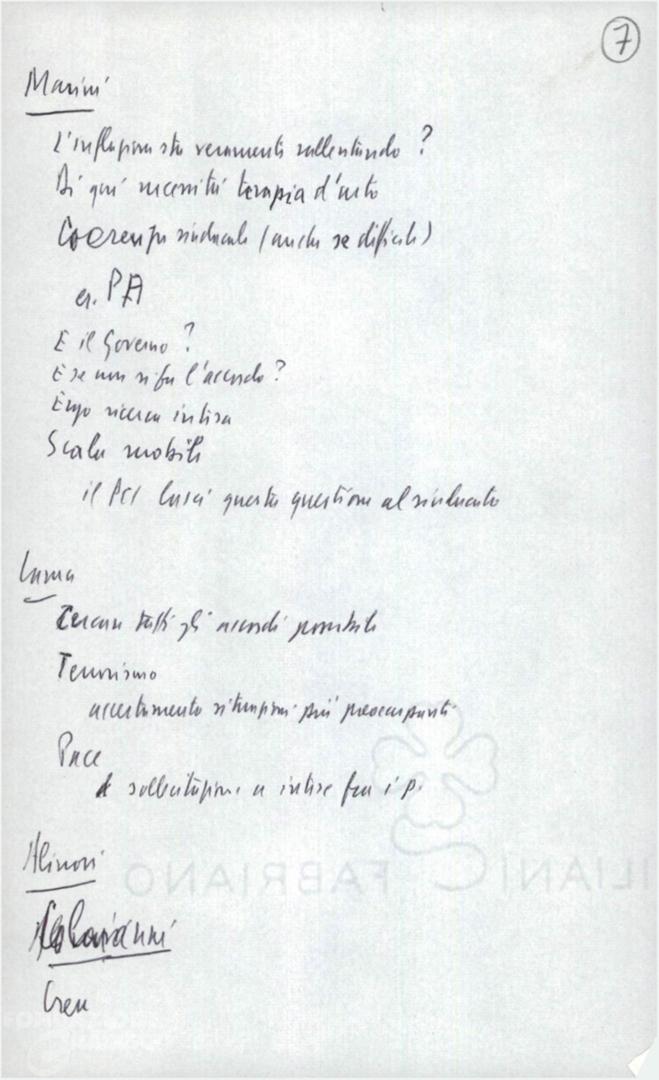 7
Marini
L'inflazione sta veramente rallentando?
Di qui necessità terapia d'urto
Coerenza sindacale (anche se difficile)
es. PA
E il Governo?
E se non si fa l'accordo?
Ergo ricerca intesa
Scala mobile
il PCI lasci questa questione al sindacato
Lama
Cercare tutti gli accordi possibili
Terrorismo
accertamento situazioni più preoccupanti
Pace
sollecitazione a intese fra i P.
Alinovi
Crea
ILIANI FABRIANO